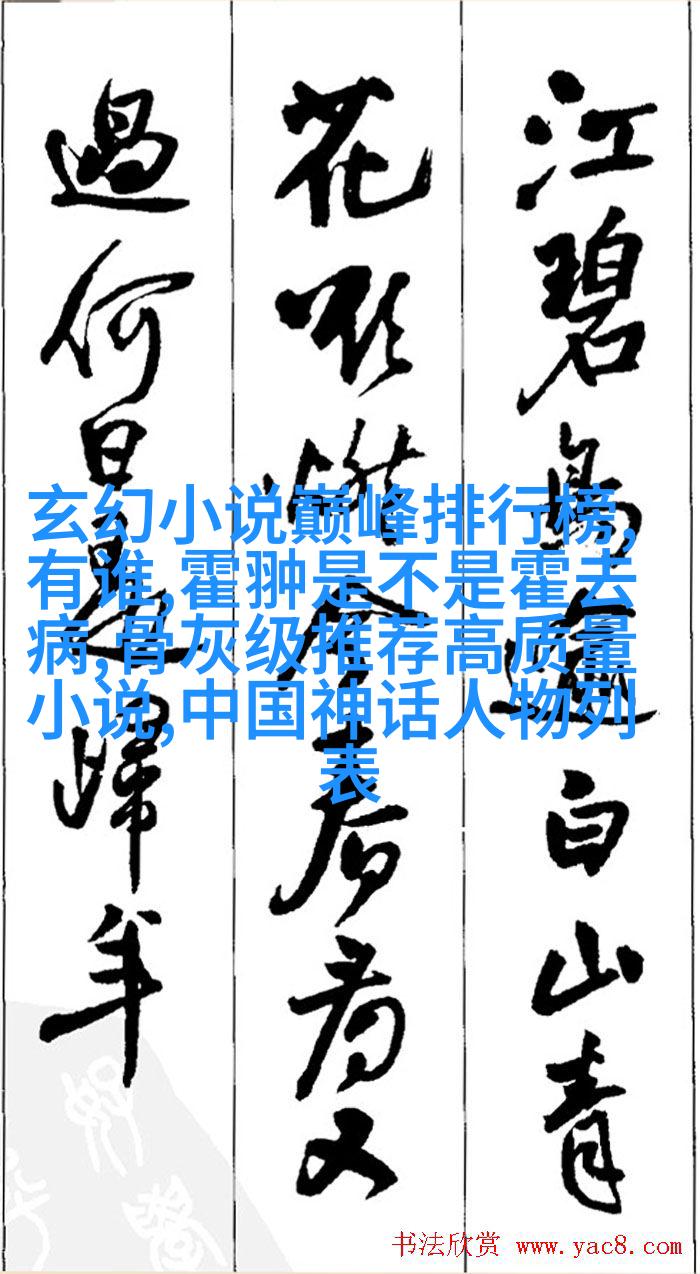 江碧鳥逾白山青
花欲燃今春看又
過何日是歸年
玄幻小说巅峰排行榜,
有谁,霍翀是不是霍去
病,骨灰级推荐高质量
小说,中国神话人物列
表
书法欣赏 www.yac8.com